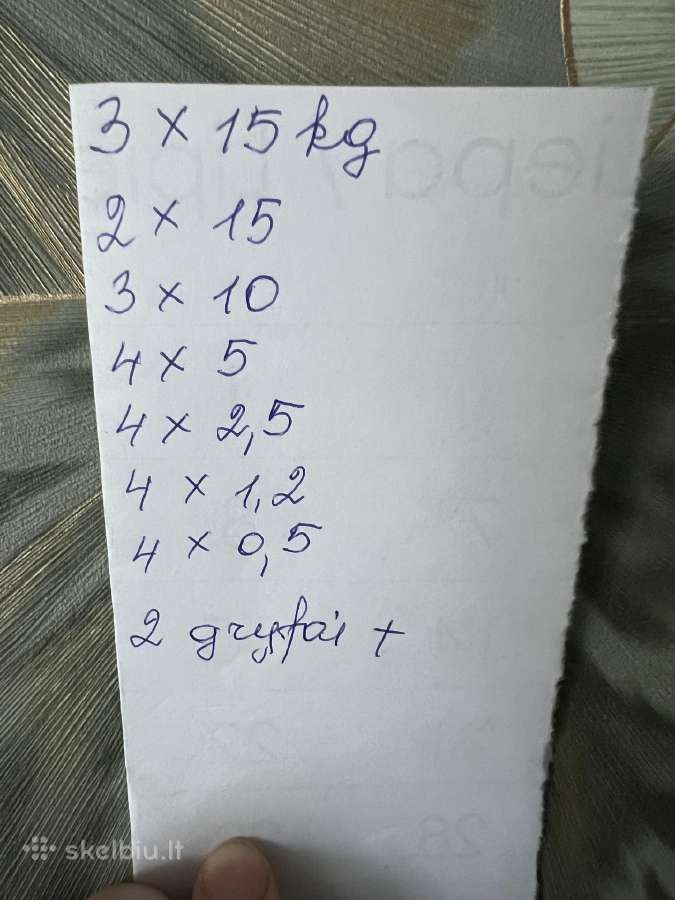 3 x 15 kg
2 x 15
3 x 10
4 x 5
4 x 2,5
4 x 1,2
4 x 0,5
2 gryfai +
skelbiu.lt